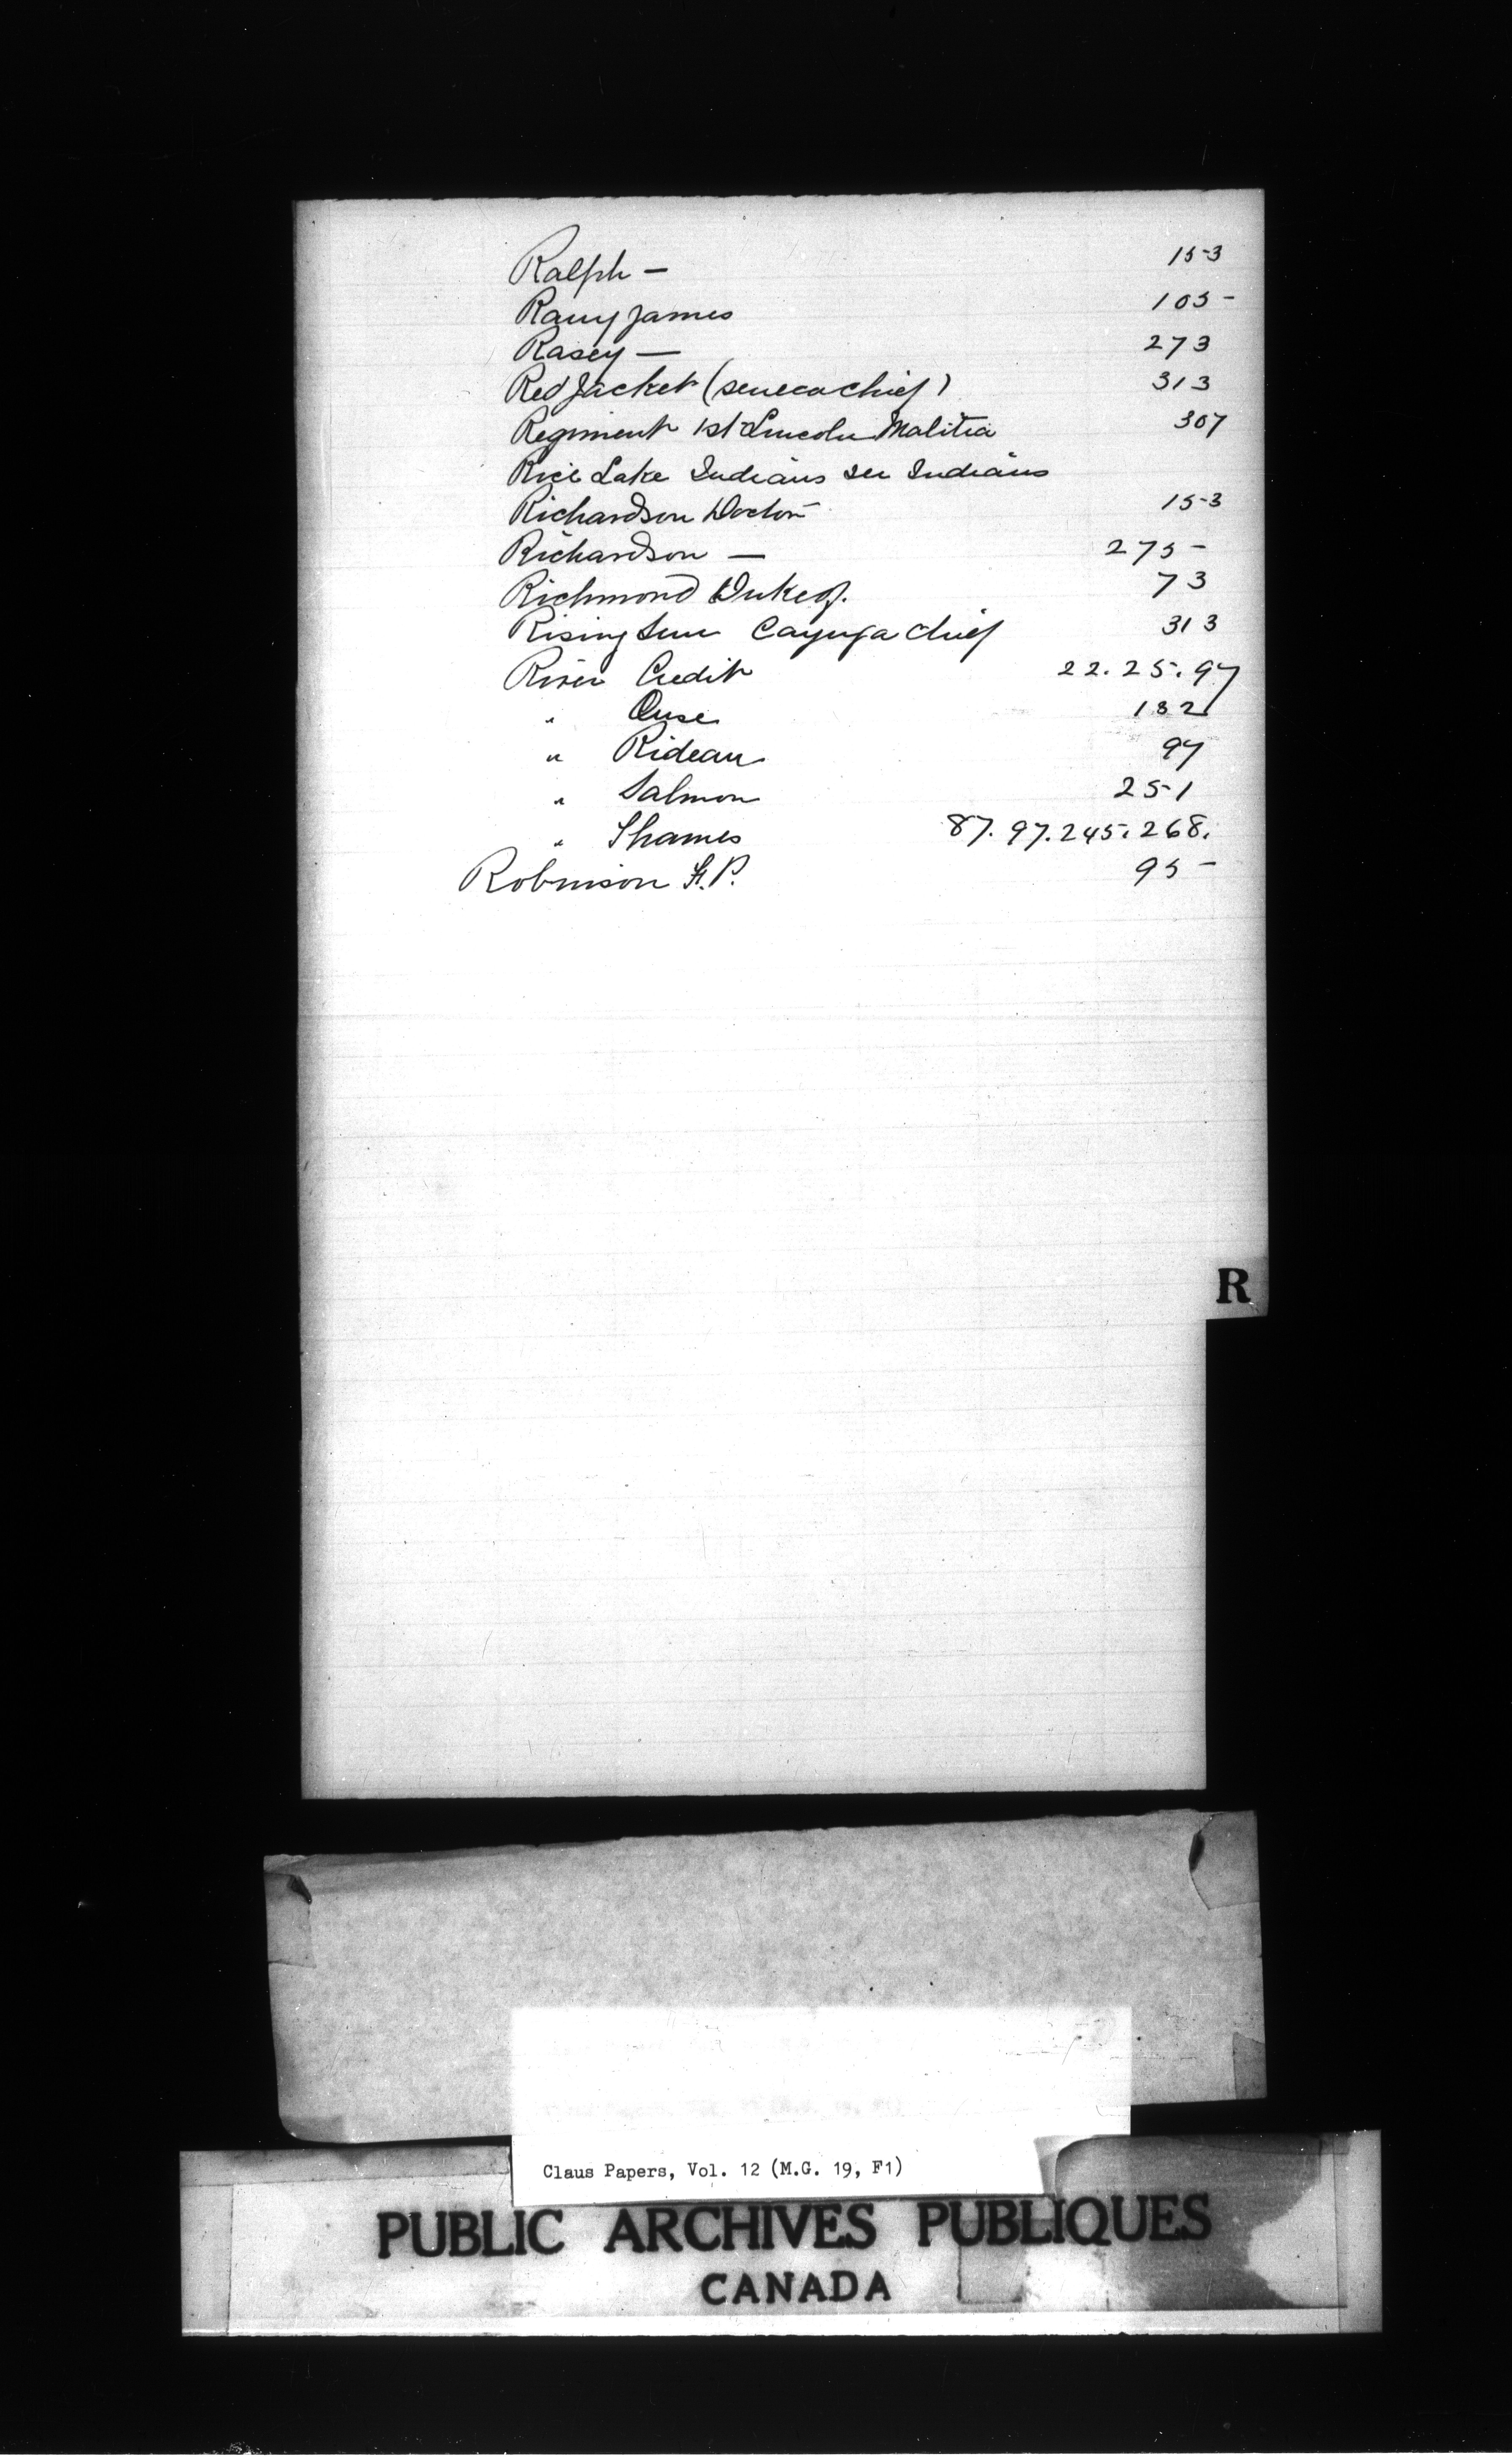 Ralph — 153
Rany James 105
Rasey — 273
Red Jacket (seneca chief) 313
Regiment 1st Lincoln Malitia 307
Rice Lake Indians see Indians
Richardson Doctor 153
Richardson — 275
Richmond Duke of. 73
Rising Sun Cayuga chief 313
River Credit 22. 25. 97
" Ouse 182
" Rideau 97
" Salmon 251
" Thames 87. 97. 245. 268.
Robinson P. 95
R
Claus Papers, Vol. 12 (M.G. 19, F1)
PUBLIC ARCHIVES PUBLIQUES
CANADA